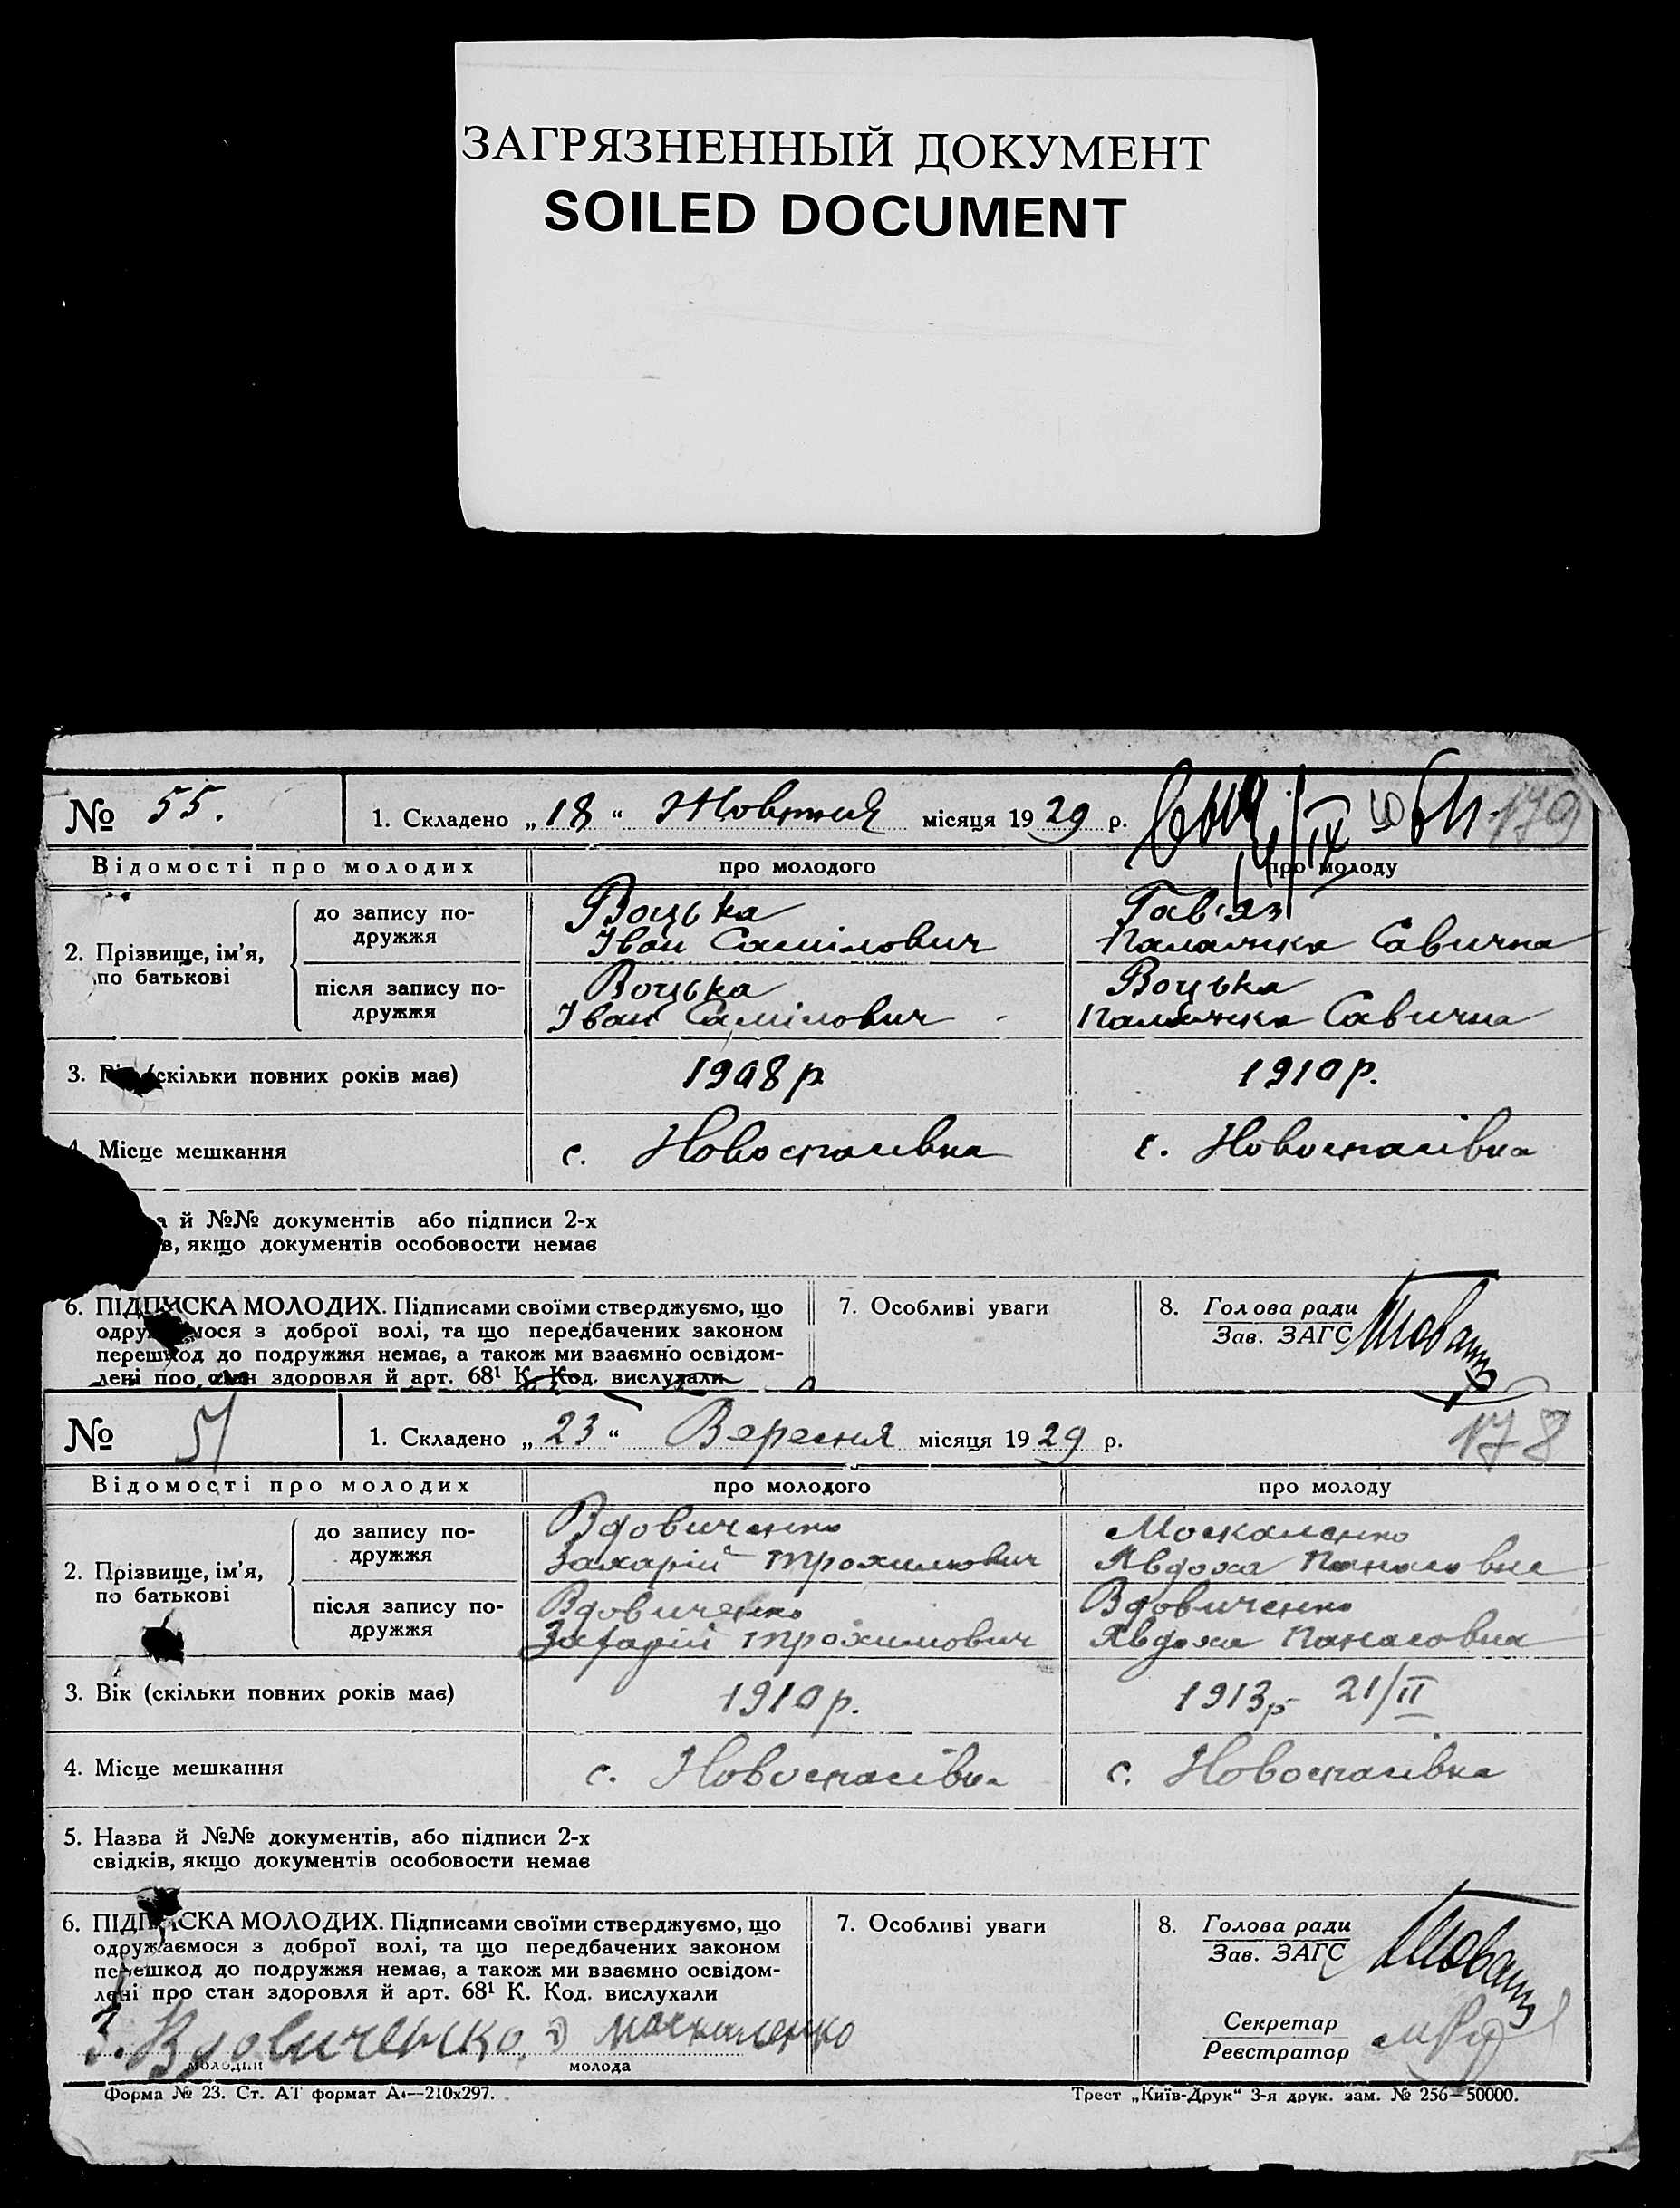 ЗАГРЯЗНЕННЫЙ ДОКУМЕНТ
SOILED DOCUMENT
№ 55. 1. Складено „18“ Жовтня місяця 1929 р. 179
Відомості про молодих про молодого про молоду
2. Прізвище, ім’я, по батькові
до запису по-
дружжя
Воцька
Іван Самілович
Гав'яз
Палажка Савична
після запису по-
дружжя
Воцька
Іван Самілович
Воцька
Палажка Савична
3. (скільки повних років має) 1908 р 1910 р.
4. Місце мешкання с. Новоспасівка с. Новоспасівка
а й №№ документів або підписи 2-х
в, якщо документів особовости немає
6. ПІДПИСКА МОЛОДИХ. Підписами своїми стверджуємо, що
одружуємося з доброї волі, та що передбачених законом
перешкод до подружжя немає, а також ми взаємно освідом-
лені про стан здоровля й арт. 68¹ К. Код. вислухали
7. Особливі уваги
8. Голова ради
Зав. ЗАГС
№ 51 1. Складено „23“ Вересня місяця 1929 р. 178
Відомості про молодих про молодого про молоду
2. Прізвище, ім’я,
по батькові
до запису по-
дружжя
Вдовиченко
Захарій Трохимович
Москаленко
Явдоха Панасовна
після запису по-
дружжя
Вдовиченко
Захарій Трохимович
Вдовиченко
Явдоха Панасовна
3. Вік (скільки повних років має) 1910 р. 1913 р 21/II
4. Місце мешкання с. Новоспасівка с. Новоспасівка
5. Назва й №№ документів, або підписи 2-х
свідків, якщо документів особовости немає
6. ПІДПИСКА МОЛОДИХ. Підписами своїми стверджуємо, що
одружаємося з доброї волі, та що передбачених законом
перешкод до подружжя немає, а також ми взаємно освідом-
лені про стан здоровля й арт. 68¹ К. Код. вислухали
З. Вдовиченко Москаленко
молодий молода
7. Особливі уваги
8. Голова ради
Зав. ЗАГС
Секретар
Реєстратор
Форма № 23. Ст. АТ формат А₄—210х297. Трест „Київ-Друк“ 3-я друк. зам. № 256—50000.